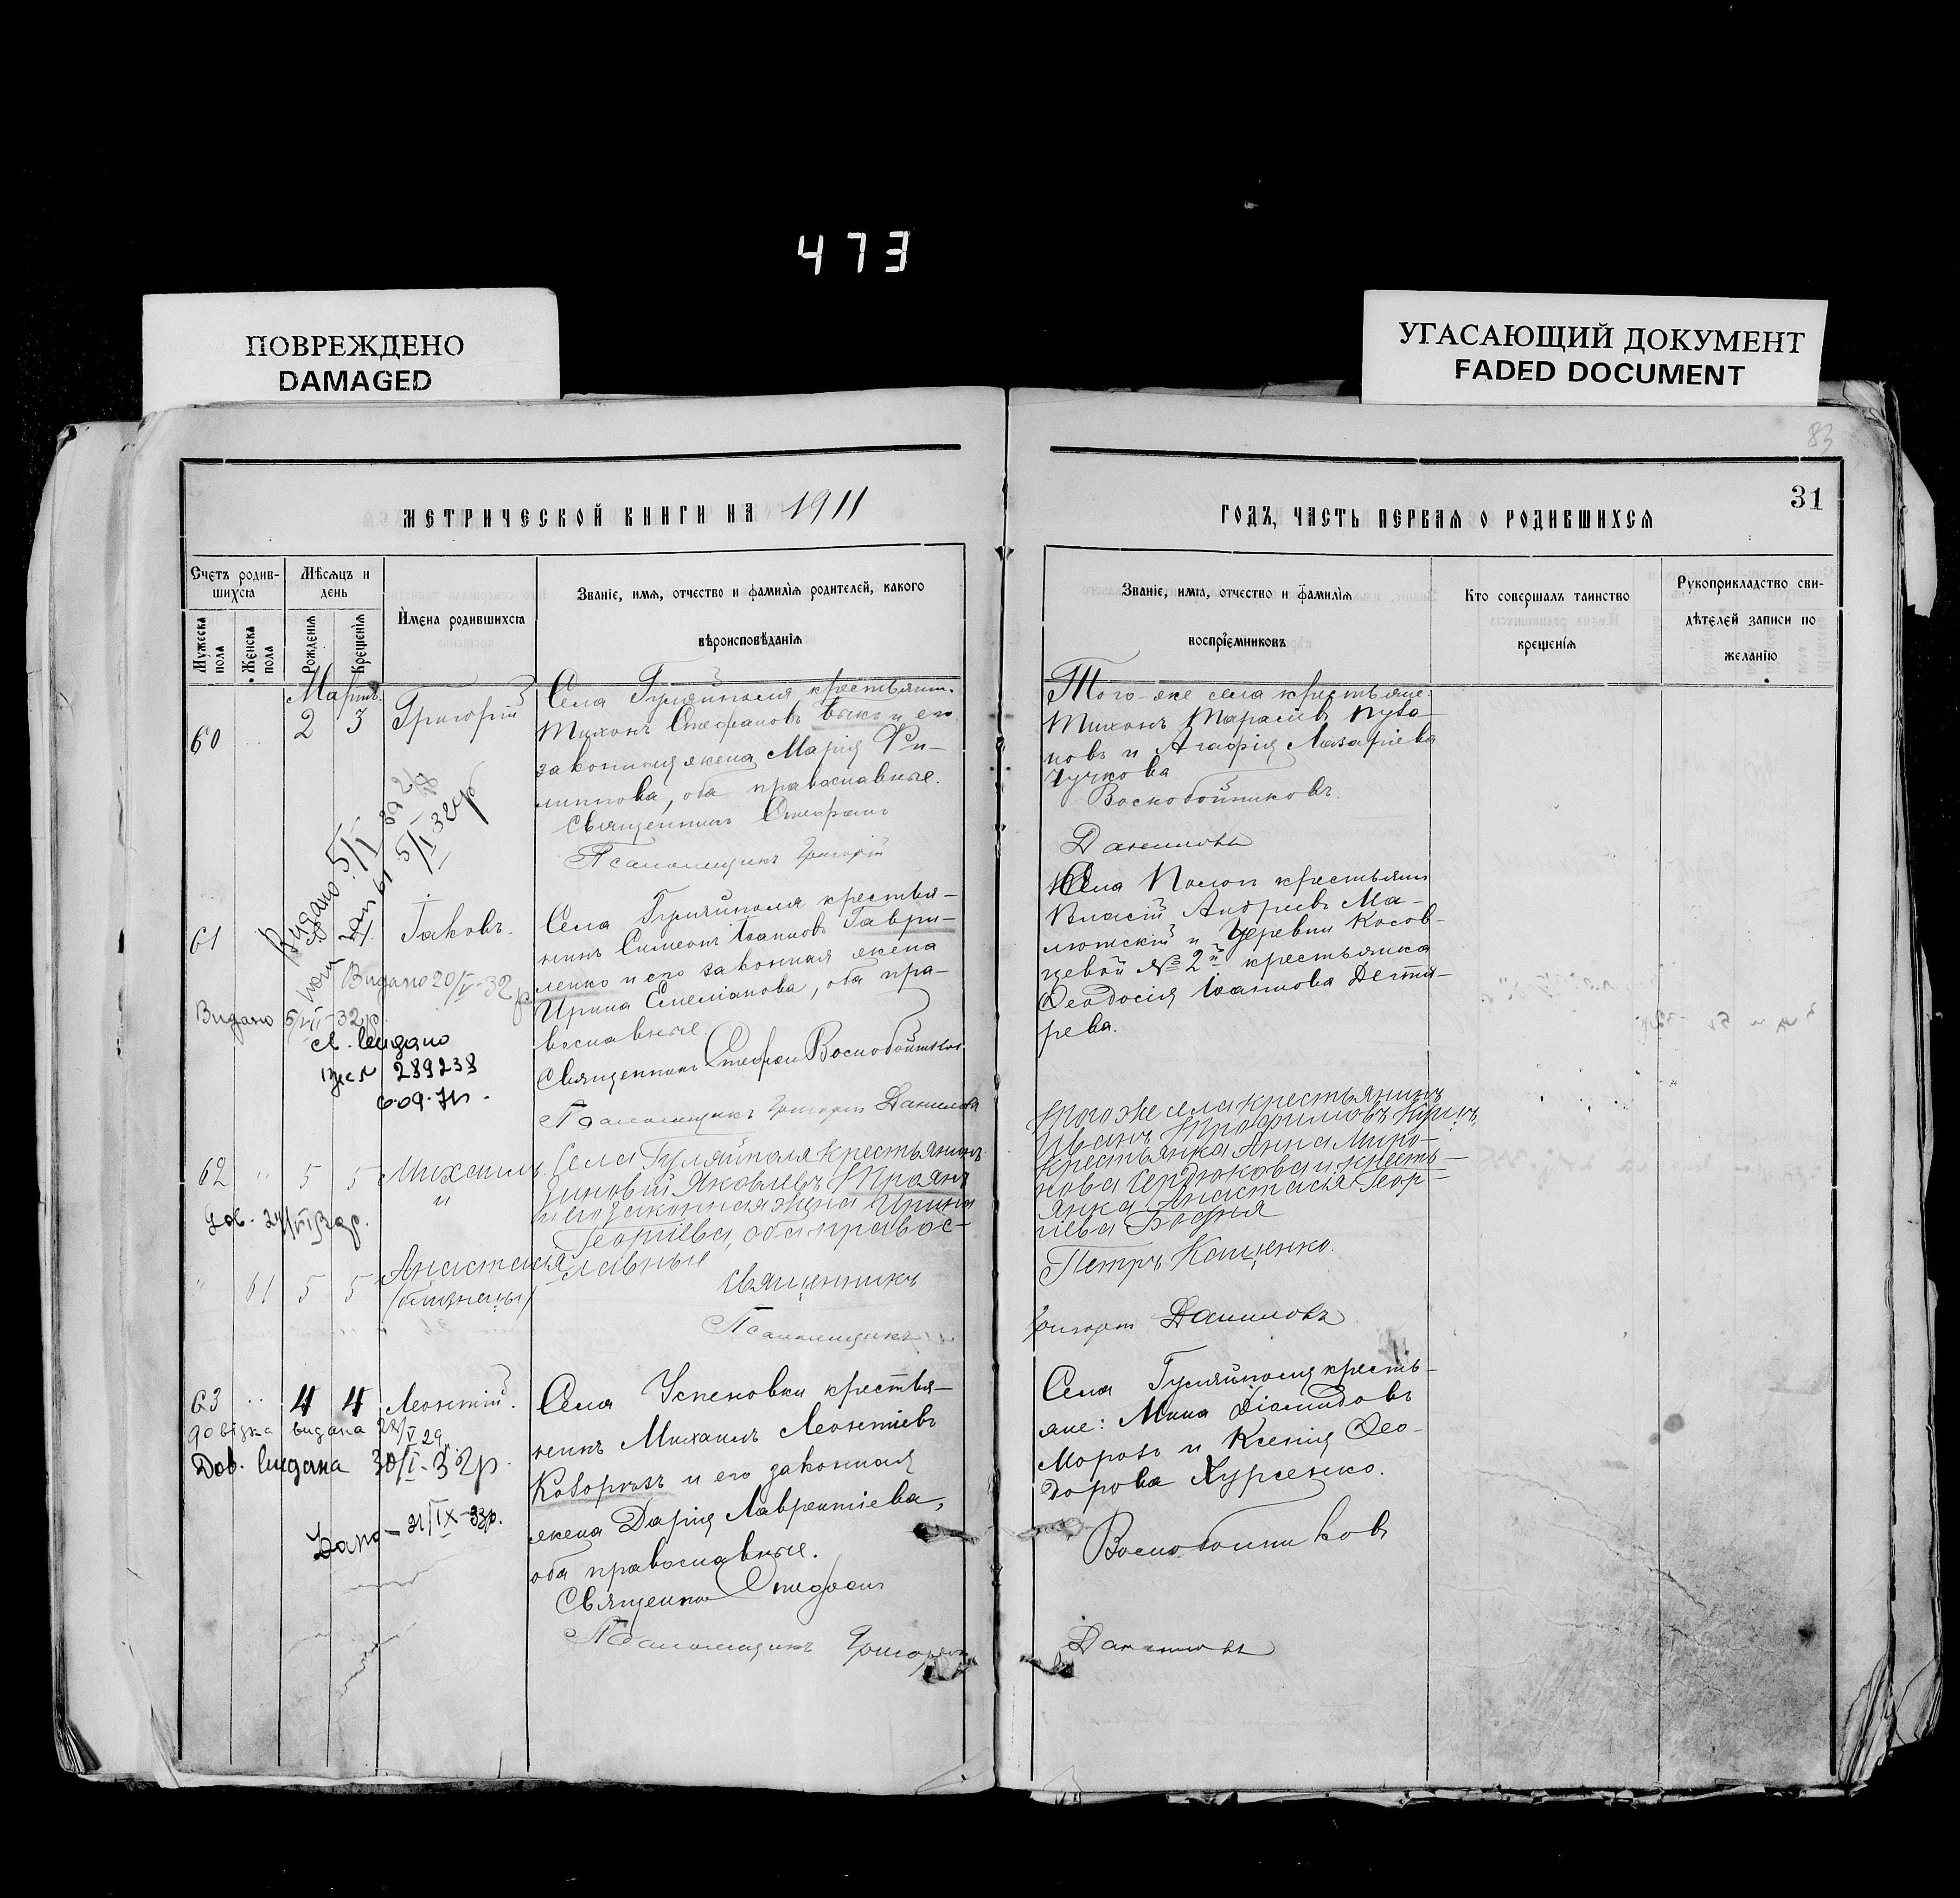 473
ПОВРЕЖДЕНО
DAMAGED
УГАСАЮЩИЙ ДОКУМЕНТ
FADED DOCUMENT
83
31
МЕТРИЧЕСКОЙ КНИГИ НА 1911
ГОДЪ, ЧАСТЬ ПЕРВАЯ О РОДИВШИХСЯ
Счетъ родив-
шихся
Мужеска пола
Женска пола
Мѣсяцъ и
день
Рожденія
Крещенія
Имена родившихся
Званіе, имя, отчество и фамилія родителей, какого
вѣроисповѣданія
Званіе, имя, отчество и фамилія
воспріемниковъ
Кто совершалъ таинство
крещенія
Рукоприкладство сви-
дѣтелей записи по
желанію
Мартъ
60 2 3 Григорій
Села Гуляйполя крестьянин.
Тихонъ Стефановъ Быкъ и его
законная жена Марія Фи-
липпова, оба православные.
Священникъ Стефанъ
Псаломщикъ Григорій
Того-же села крестьяне:
Тихонъ Тарасіевъ
и Агафія Лазаріева
Чучкова
Воскобойниковъ.
Даниловъ
Видано 5/I
5/I 32 р
61 Іаковъ.
Села Гуляйполя крестья-
нинъ Симеонъ Іоанновъ Гаври-
ленко и его законная жена
Ирина Емеліанова, оба пра-
вославные.
Священникъ Стефан Воскобойников
Псаломщикъ Григорій Даниловъ
Села Пологи крестьянин
Власій Андреевъ Ма-
лютскій и деревни Косов-
цевой № 2й крестьянка
Феодосія Іоаннова Дегтя-
рева.
Видано 20/V-32 р
Видано 5/VII-32р.
св. видано
289238
6.09.71г.
62 " 5 5 Михаилъ
и
Села Гуляйполя крестьянинъ
Зиновій Яковлевъ Троянъ
и его законная жена Ирина
Георгіева, оба правос-
лавные
Священникъ
Псаломщикъ
Дов. 24/VI 32р.
" 61 5 5 Анастасія
(близнецы)
Того же села крестьянинъ
Иванъ Трофимовъ
крестьянка Анна Миро-
нова Сердюкова и кресть-
янка Анастасія Геор-
гіева Бодня
Петръ Кащенко.
Григорій Даниловъ
63 " 4 4 Леонтій.
Села Успеновки крестья-
нинъ Михаилъ Леонтіевъ
Козорызъ и его законная
жена Дарія Лаврентіева,
оба православные.
Священник Стефанъ
Псаломщикъ Григорій
Села Гуляйполя кресть-
яне: Мина Діомидовъ
Морозъ и Ксенія Фео-
дорова Хурсенко.
Воскобойниковъ
Даниловъ
довідка видана 22/V 29
Дов. видана 30/I-32р.
Дано - 21/IX-33р.